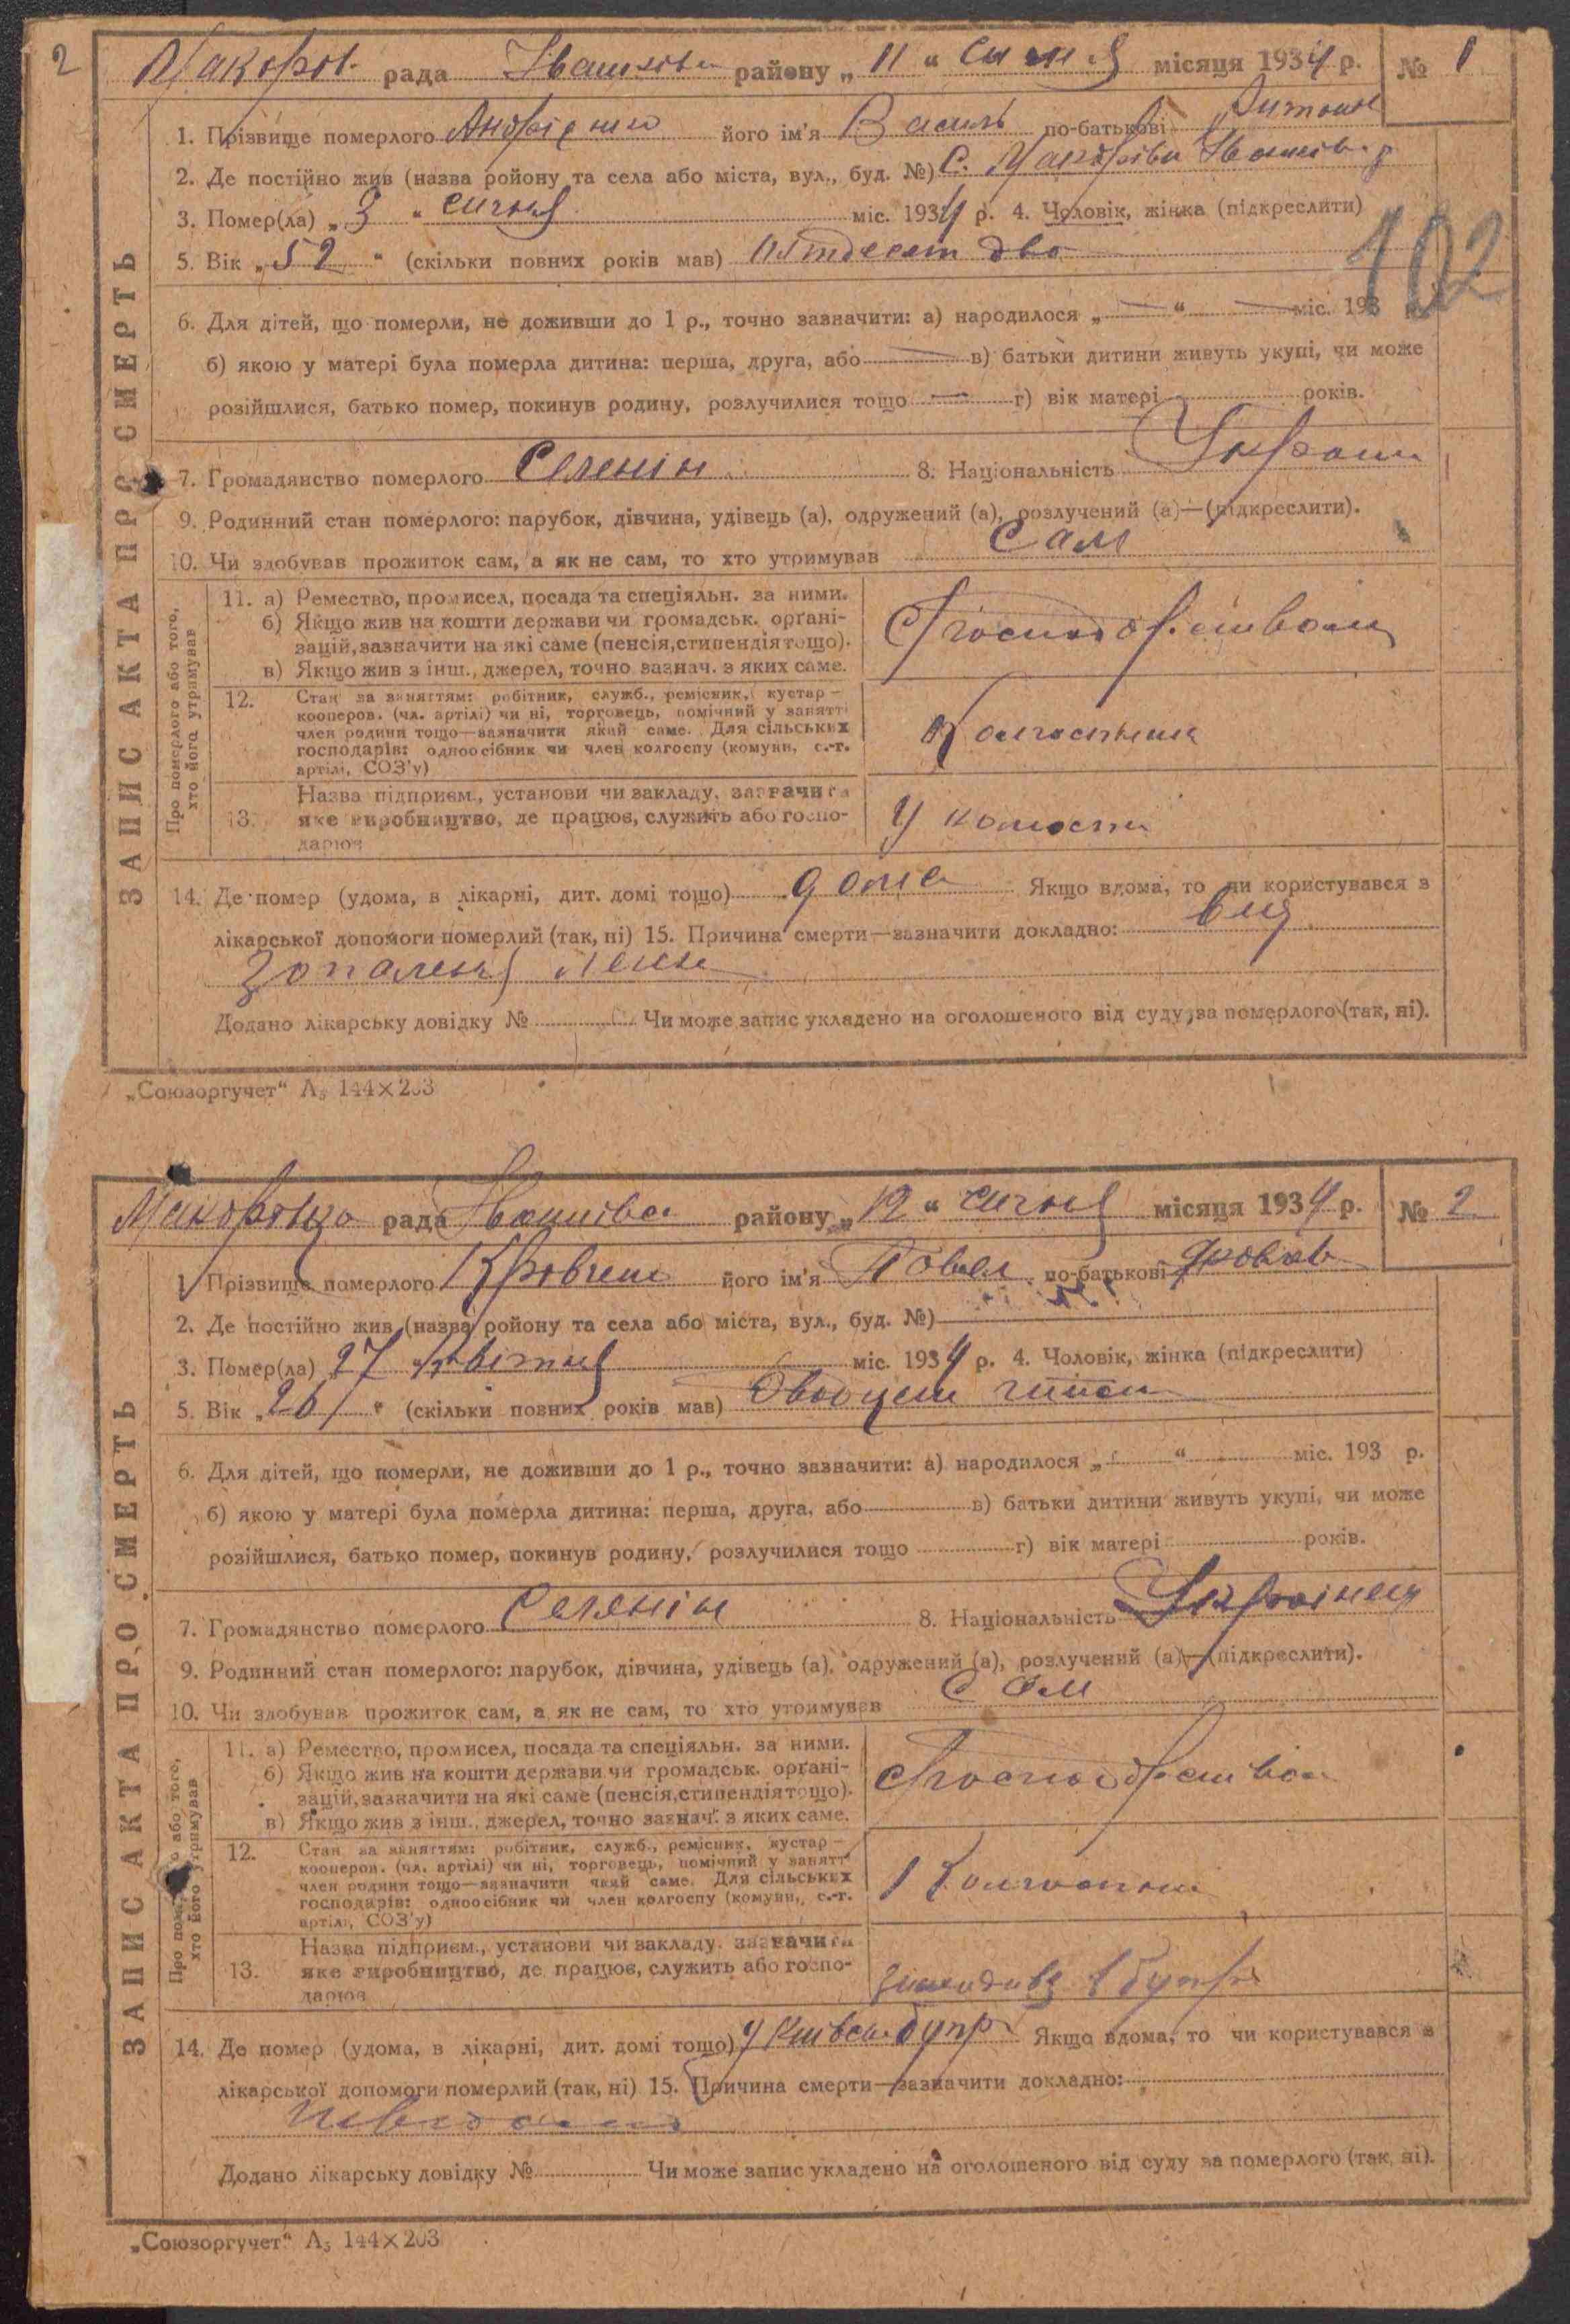 2
рада район у „ 11 “ місяця 1934 р. № 1
ЗАПИС АКТА ПРО СМЕРТЬ
1. Прізвище померлого його ім'я Василь по-батькові
2. Де постійно жив (назва ройону та села або міста, вул., буд. №) С.
3. Помер(ла) „ 3 “ січня міс. 1934 р. 4. Чоловік, жінка (підкреслити)
102
5. Вік „ 52 “ (скільки повних років мав) дво
6. Для дітей, що померли, не доживши до 1 р., точно зазначити: а) народилося „ — “ — міс. 193
б) якою у матері була померла дитина: перша, друга, або — в) батьки дитини живуть укупі, чи може
розійшлися, батько помер, покинув родину, розлучилися тощо — г) вік матері років.
7. Громадянство померлого Селенін 8. Національність
9. Родинний стан померлого: парубок, дівчина, удівець (а), одружений (а), розлучений (а)—(підкреслити).
10. Чи здобував прожиток сам, а як не сам, то хто утримував Сам
Про померлого або того,
хто його утримував
11. а) Ремество, промисел, посада та спеціяльн. за ними.
б) Якщо жив на кошти держави чи громадськ. органі-
зацій, зазначити на які саме (пенсія, стипендія тощо).
в) Якщо жив з інш., джерел, точно зазнач. з яких саме.
12. Стан за заняттям: робітник, служб., ремісник, кустар —
кооперов. (чл. артілі) чи ні, торговець, помічний у занятті
член родини тощо—зазначити який саме. Для сільських
господарів: одноосібник чи член колгоспу (комуни, с.-г.
артілі, СОЗ'у)
13. Назва підприєм., установи чи закладу, зазначити
яке виробництво, де працює, служить або госпо-
дарює
У
14. Де помер (удома, в лікарні, дит. домі тощо) дома Якщо вдома, то чи користувався з
лікарської допомоги померлий (так, ні) 15. Причина смерти—зазначити докладно: від
Запаленя
Додано лікарську довідку № Чи може запис укладено на оголошеного від суду за померлого (так, ні).
„Союзоргучет“ А₅ 144×203
рада район у „ 12 “ січня місяця 1934 р. № 2
ЗАПИС АКТА ПРО СМЕРТЬ
1. Прізвище померлого його ім'я Павел по-батькові
2. Де постійно жив (назва ройону та села або міста, вул., буд. №) —
3. Помер(ла) „ 27 “ міс. 1934 р. 4. Чоловік, жінка (підкреслити)
5. Вік „ 26 “ (скільки повних років мав)
6. Для дітей, що померли, не доживши до 1 р., точно зазначити: а) народилося „ “ міс. 193 р.
б) якою у матері була померла дитина: перша, друга, або в) батьки дитини живуть укупі, чи може
розійшлися, батько помер, покинув родину, розлучилися тощо г) вік матері років.
7. Громадянство померлого Селенін 8. Національність Українец
9. Родинний стан померлого: парубок, дівчина, удівець (а), одружений (а), розлучений (а)—(підкреслити).
10. Чи здобував прожиток сам, а як не сам, то хто утримував Сам
Про або того,
хто його утримував
11. а) Ремество, промисел, посада та спеціяльн. за ними.
б) Якщо жив на кошти держави чи громадськ. органі-
зацій, зазначити на які саме (пенсія, стипендія тощо).
в) Якщо жив з інш., джерел, точно зазнач. з яких саме.
12. Стан за заняттям: робітник, служб., ремісник, кустар —
кооперов. (чл. артілі) чи ні, торговець, помічний у занятті
член родини тощо—зазначити який саме. Для сільських
господарів: одноосібник чи член колгоспу (комуни, с.-г.
артілі, СОЗ'у)
13. Назва підприєм., установи чи закладу, зазначити
яке виробництво, де працює, служить або госпо-
дарює
14. Де помер (удома, в лікарні, дит. домі тощо) У бупр Якщо вдома, то чи користувався з
лікарської допомоги померлий (так, ні) 15. Причина смерти—зазначити докладно:
Додано лікарську довідку № Чи може запис укладено на оголошеного від суду за померлого (так, ні).
„Союзоргучет“ А₅ 144×203